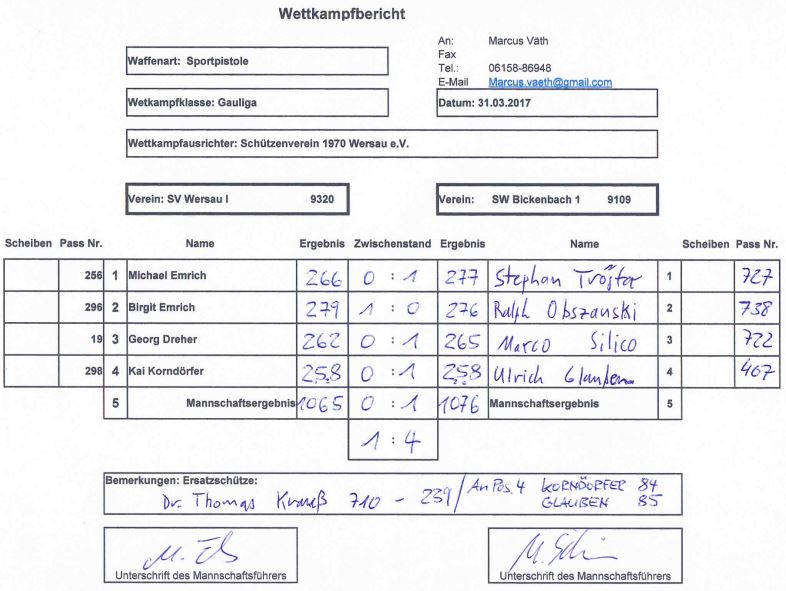 Wettkampfbericht
An: Marcus Väth
Fax
Waffenart: Sportpistole
Tel.: 06158-86948
E-Mail Marcus.vaeth@gmail.com
Wetkampfklasse: Gauliga
Datum: 31.03.2017
Wettkampfausrichter: Schützenverein 1970 Wersau e.V.
Verein: SV Wersau I 9320
Verein: SW Bickenbach 1 9109
Scheiben Pass Nr. Name Ergebnis Zwischenstand Ergebnis Name Scheiben Pass Nr.
256 1 Michael Emrich 266 0 : 1 277 Stephan 1 727
296 2 Birgit Emrich 279 1 : 0 276 Ralph Obszanski 2 738
19 3 Georg Dreher 262 0 : 1 265 Marco Silico 3 722
298 4 Kai Korndörfer 258 0 : 1 258 Ulrich Glauben 4 467
5 Mannschaftsergebnis 1065 0 : 1 1076 Mannschaftsergebnis 5
1 : 4
Bemerkungen: Ersatzschütze:
Dr. Thomas Krauß 710 - 239 / An Pos. 4 KORNDÖRFER 84
GLAUBEN 85
Unterschrift des Mannschaftsführers
Unterschrift des Mannschaftsführers